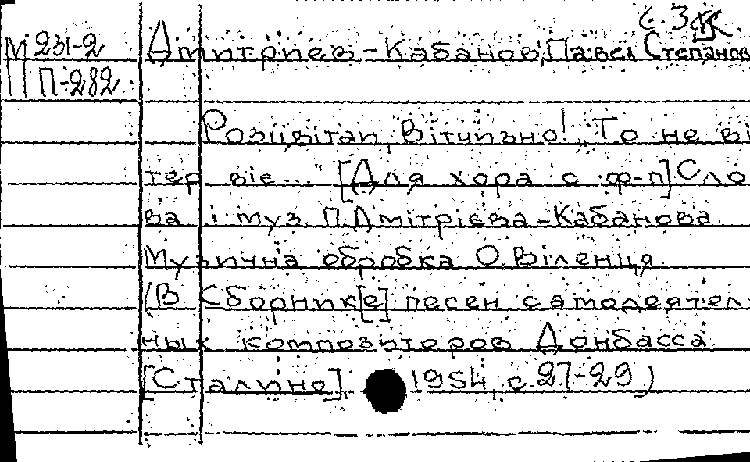 с. 3
М 231-2 Дмитриев-Кабанов, Павел Степанов
П-282
Розцвітай, Вітчизно! „То не ві
тер віє..." [Для хора с ф-п] Сло
ва і муз. П. Дмітрієва-Кабанова.
Музична обробка О. Віленця.
(В Сборник[е] песен самодеятель
ных композиторов Донбасса
[Сталино] 1954, с. 27-29)